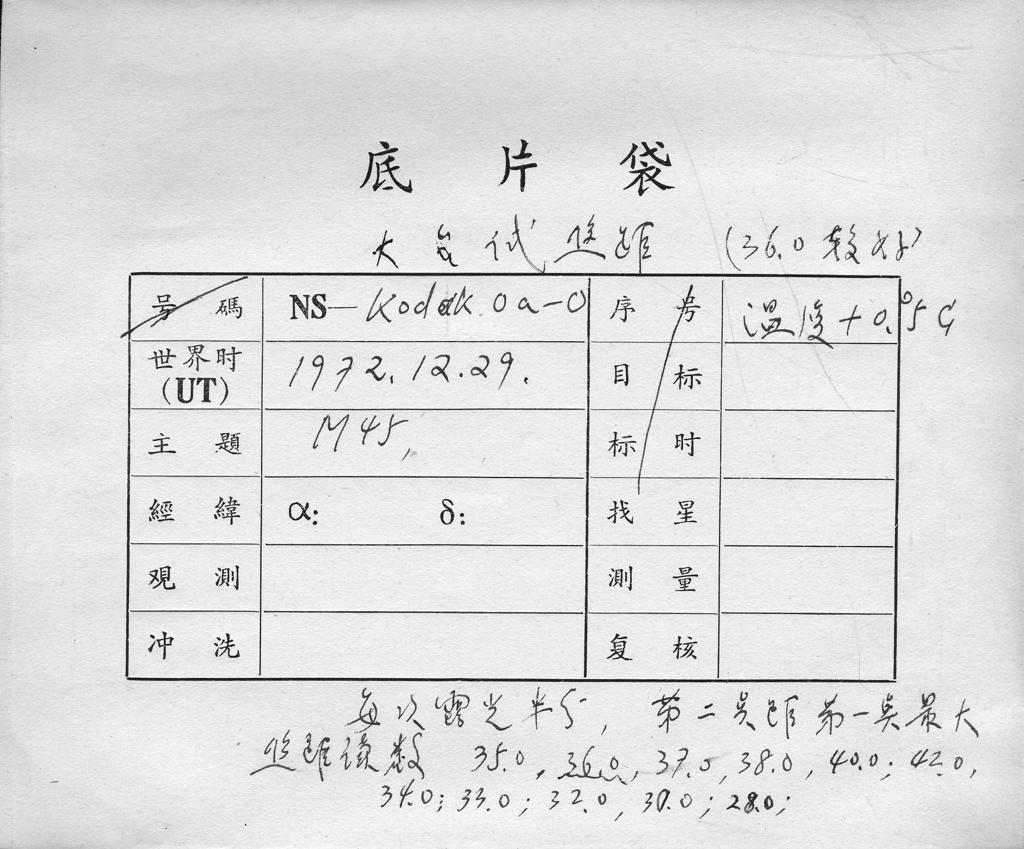 底片袋
大台试焦距 (36.0 较好)
号碼 NS—Kodak Oa-O 序号 温度+0.°5 C
世界时(UT) 1972.12.29. 目标
主題 M45, 标时
經緯 α: δ: 找星
观測 測量
冲洗 复核
每次露光半分, 第二星距第一星最大
焦距读数 35.0, 36.0, 37.0, 38.0, 40.0; 42.0,
34.0; 33.0; 32.0, 30.0; 28.0;